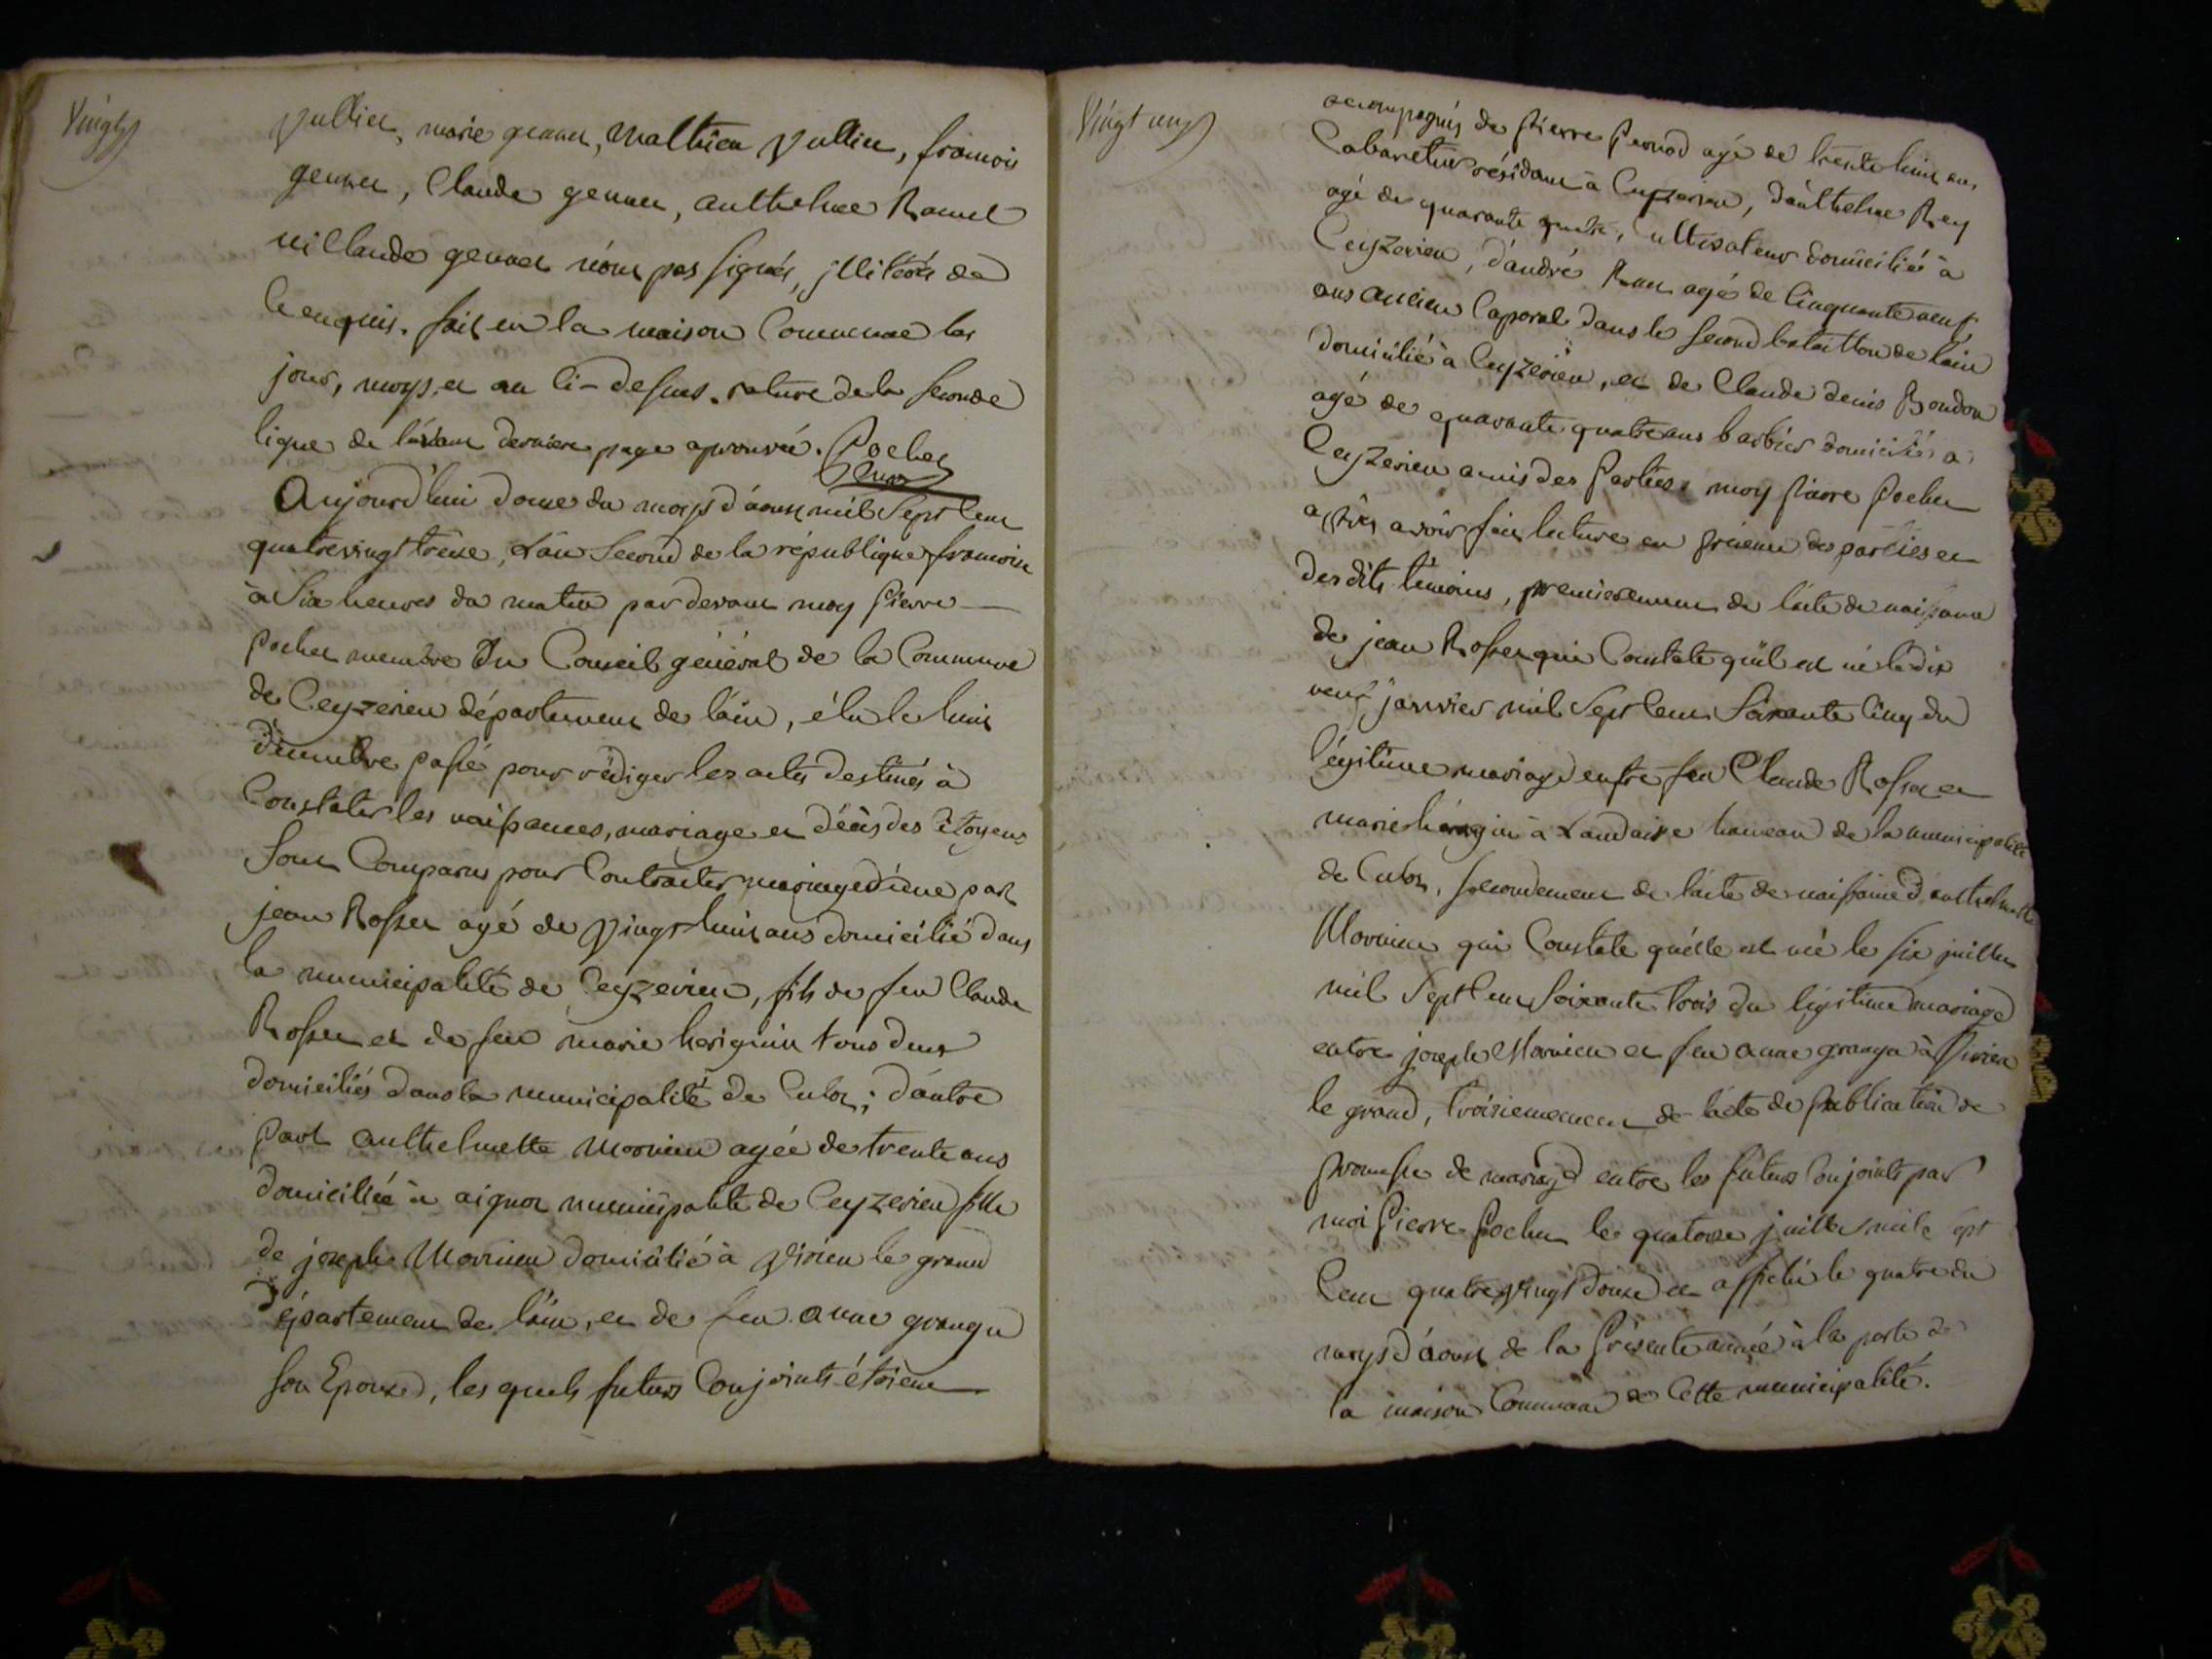 Vingt
Vullier, marie genner, Mathieu Vullier, francois
genner, Claude genner, anthelme Ramel
ni Claude genner n'ont pas signés, jlliterés de
ce enquis. fait en la maison Commune les
jour, moys, et an Ci-dessus. rature de la seconde
ligne de l'avant derniere page aprouvée. Pochet
Aujourd'hui douze du moys d'aoust mil Sept Cent
quatrevingt treize, L'an Second de la république francoise
à Six heures du matin par devant moy Pierre
Pochet membre Du Conseil général de la Commune
de Ceyzerieu département de l'ain, élu le huit
décembre passé pour rédiger les actes destinés à
Constater les naissances, mariage et décès des Citoyens
Sont Comparus pour Contracter mariage d'une part
jean Rosset agé de Vingt huit ans domicilié dans
la municipalité de Ceyzerieu, fils de feu Claude
Rosset et de feu marie heriguin tous deux
domiciliés dans la municipalité de Culoz; d'autre
part anthelmette Mornieu agée de trente ans
domiciliée à aignoz municipalité de Ceyzerieu fille
de joseph Mornieu domicilié à Virieu le grand
département de l'ain, et de feu anne grangu
son Epouse, les quels futurs Conjoints étoient
Vingt un
accompagnés de Pierre Pernod agé de trente huit ans,
Cabaretier résidant à Ceyzerieu, d'anthelme Rey
agé de quarante quatre, Cultivateur domicilié à
Ceyzerieu, d'andré agé de Cinquante neuf
ans ancien Caporal dans le second bataillon de l'ain
domicilié à Ceyzerieu, et de Claude denis Bondon
agé de quarante quatre ans barbier domicilié à
Ceyzerieu amis des Parties. moy Pierre Pochet
après avoir fait lecture en présence des parties et
des dits témoins, premierement de l'acte de naissance
de jean Rosset qui Constate qu'il est né le dix
neuf janvier mil Sept Cent Soixante Cinq du
légitime mariage entre feu Claude Rosset et
marie à Landaize hameau de la municipalité
de Culoz, secondement de l'acte de naissance d'anthelmette
Mornieu qui Constate qu'elle est née le six juillet
mil Sept Cent Soixante trois du légitime mariage
entre joseph Mornieu et feu anne grangu à Virieu
le grand, troisiemement de l'acte de publication de
promesse de mariage entre les futurs Conjoints par
moi Pierre Pochet le quatorze juillet mil Sept
Cent quatre Vingt douze et affiché le quatre du
moys d'aoust de la Présente année à la porte de
la maison Commune de Cette municipalité.